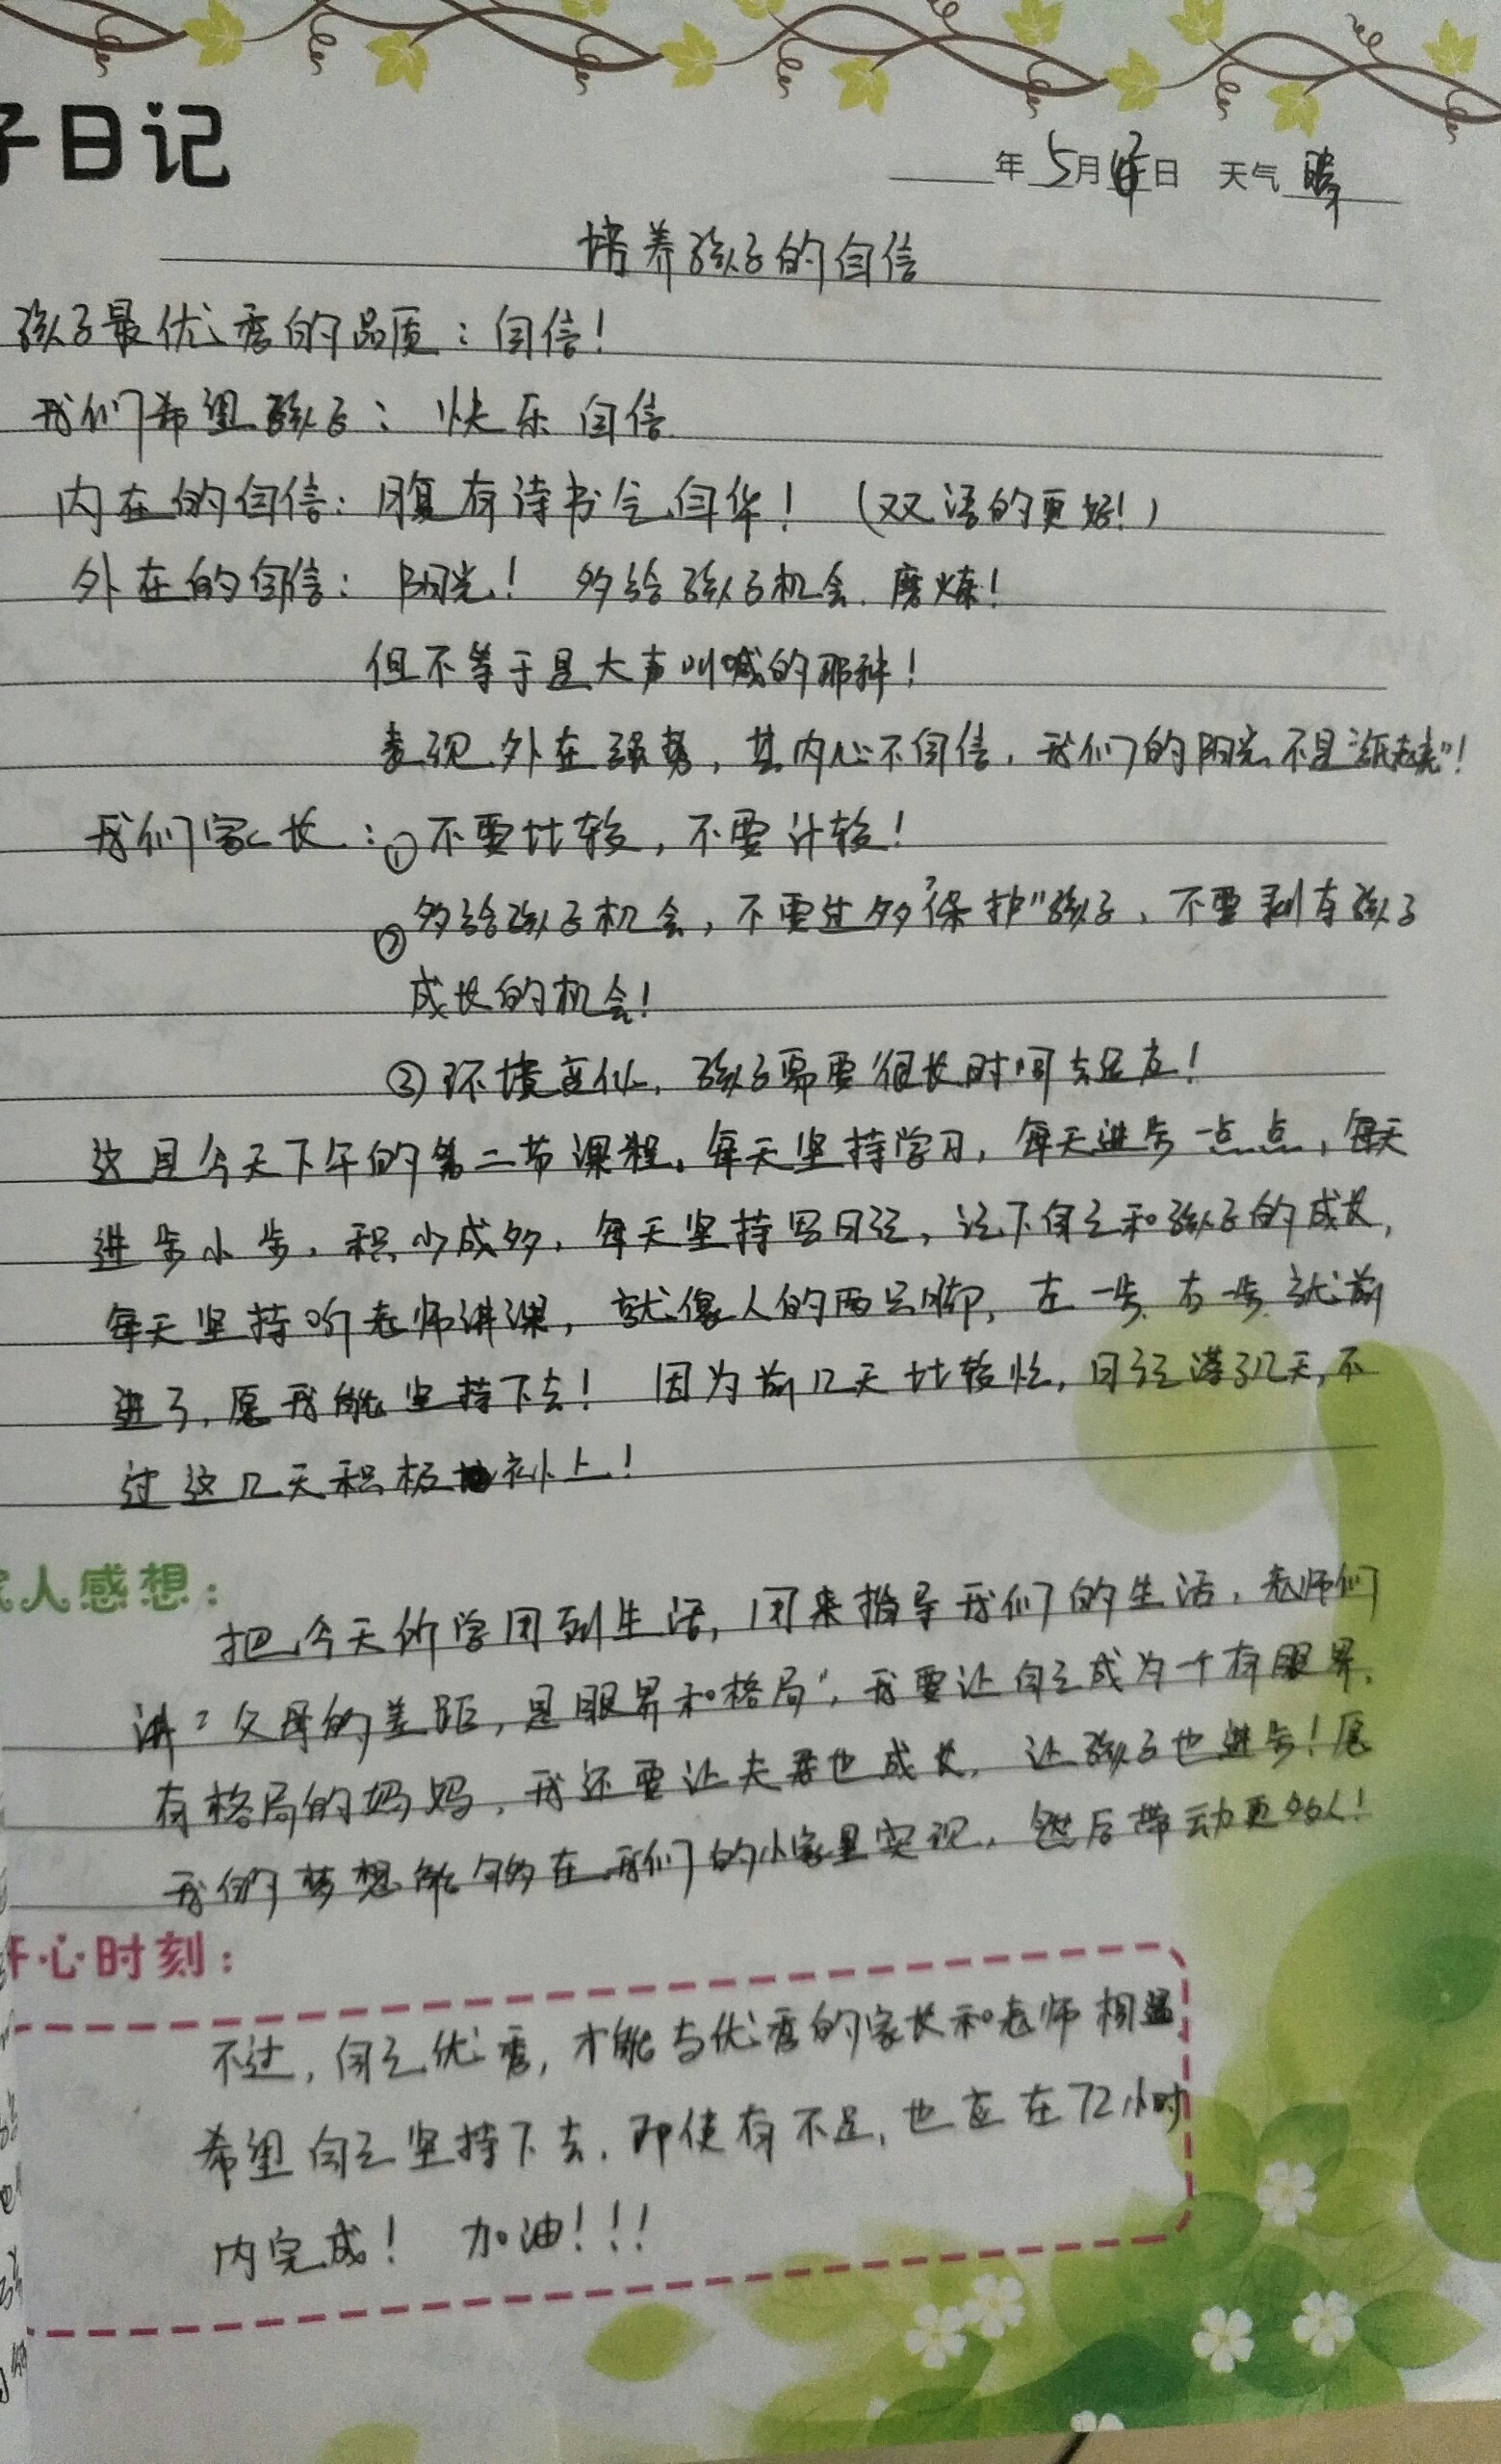 子日记
年 5月 日 天气 晴
培养孩子的自信
孩子最优秀的品质：自信！
我们希望孩子：快乐 自信
内在的自信：腹有诗书气自华！（双语的更好！）
外在的自信：阳光！ 多给孩子机会、磨炼！
但不等于是大声叫喊的那种！
表现外在强势，其内心不自信，我们的阳光不是"纸老虎"！
我们家长：①不要比较，不要计较！
②多给孩子机会，不要过多"保护"孩子，不要剥夺孩子
成长的机会！
③环境变化，孩子需要很长时间去适应！
这是今天下午的第二节课程，每天坚持学习，每天进步一点点，每天
进步小步，积少成多，每天坚持写日记，记下自己和孩子的成长，
每天坚持听老师讲课，就像人的两只脚，左一步右一步就前
进了，愿我能坚持下去！ 因为前几天比较忙，日记落了几天，不
过这几天积极地补上！
人感想：
把今天所学用到生活，用来指导我们的生活，老师们
讲"父母的差距，是眼界和格局"，我要让自己成为一个有眼界、
有格局的妈妈，我还要让夫君也成长，让孩子也进步！愿
我的梦想能够在我们的小家里实现，然后带动更多人！
开心时刻：
不过，自己优秀，才能与优秀的家长和老师相遇，
希望自己坚持下去，即使有不足，也应在72小时
内完成！ 加油！！！